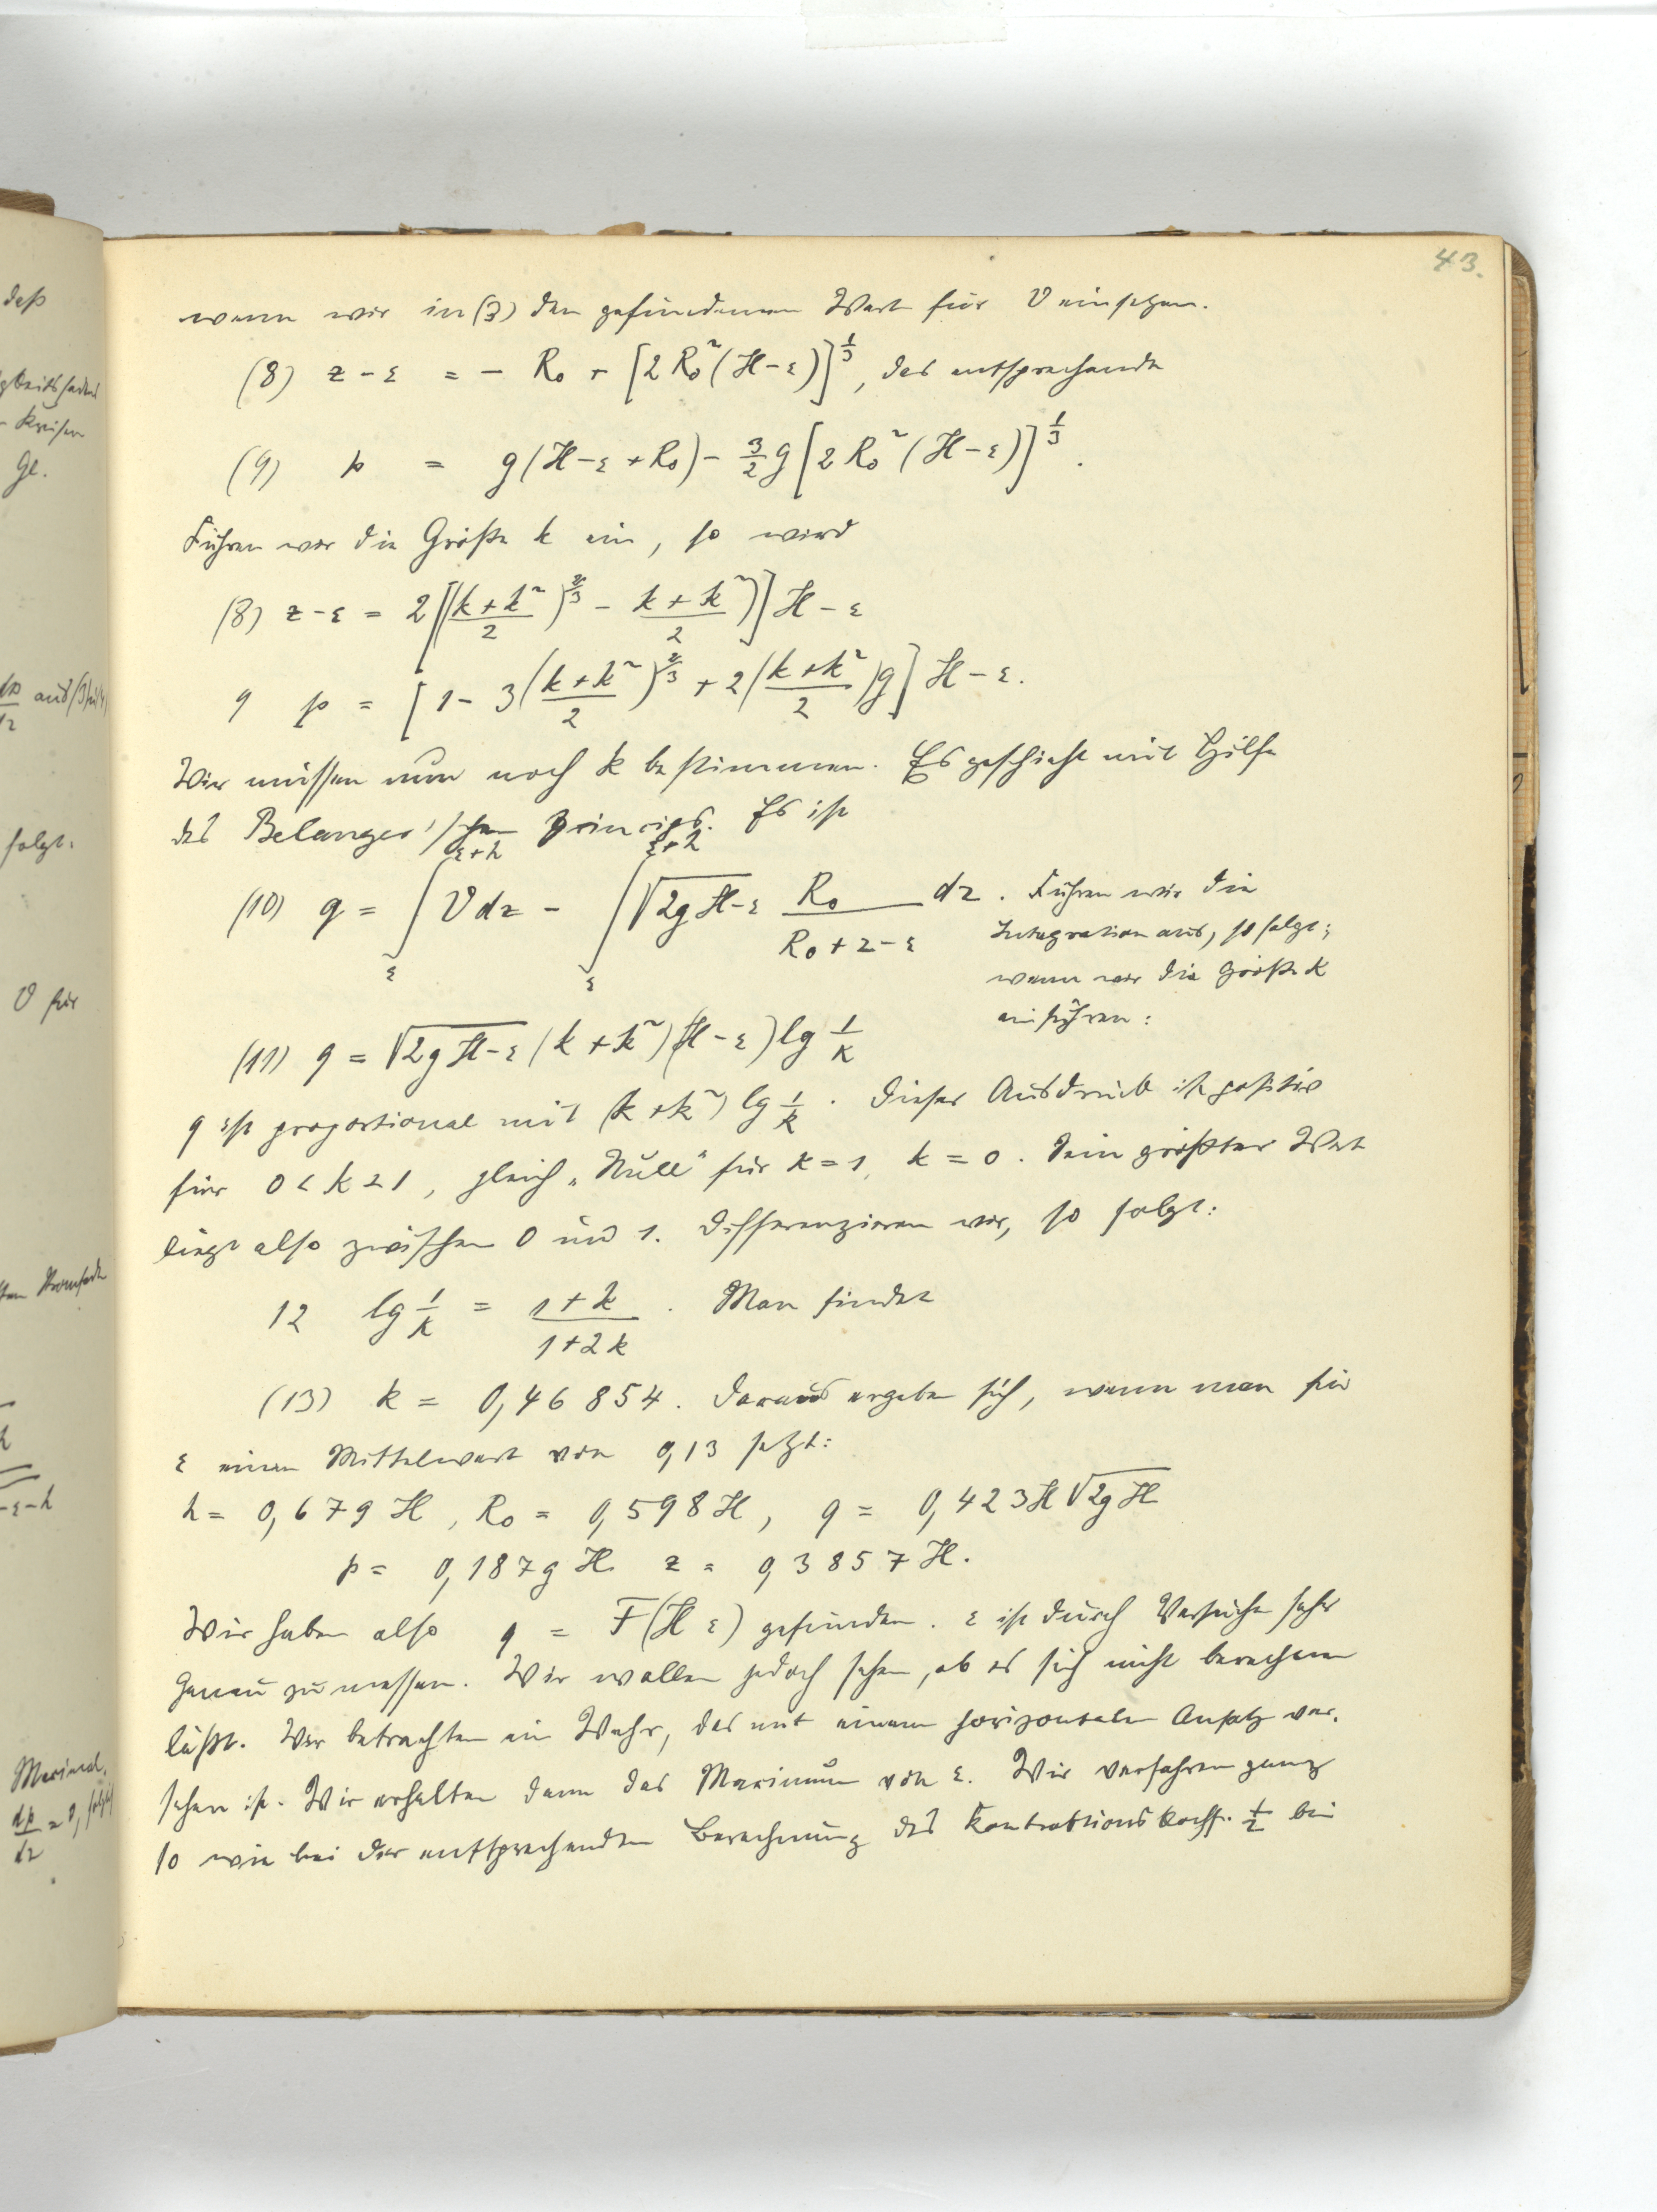 43.
wenn wir in (3) den gefundenen Wert für V einsetzen.
(8) z - ε = - R₀ + [2 R₀² (H - ε)]^{1/3}, das entsprechende
(9) p = g (H - ε + R₀) - 3/2 g [2 R₀² (H - ε)]^{1/3}.
Führen wir die Größe k ein, so wird
(8) z - ε = 2 [((k + k²)/2)^{2/3} - (k + k²)/2)] H - ε
9 p = [1 - 3 ((k + k²)/2)^{2/3} + 2 ((k + k²)/2) g] H - ε.
Wir müssen nun noch k bestimmen. Es geschieht mit Hilfe
des Belanger'schen Princips. Es ist
(10) q = ∫_ε^{ε+h} V dz - ∫_ε^{ε+h} √2g H - ε R₀/(R₀ + z - ε) dz. Führen wir die
Integration aus, so folgt;
wenn wir die Größe k
einführen:
(11) q = √2g H - ε (k + k²) (H - ε) lg 1/k
q ist proportional mit (k + k²) lg 1/k. Dieser Ausdruck ist positiv
für 0 < k < 1, gleich „Null“ für k = 1, k = 0. Sein größter Wert
liegt also zwischen 0 und 1. Differenzieren wir, so folgt:
12 lg 1/k = (1 + k)/(1 + 2k). Man findet
(13) k = 0,46854. Daraus ergeben sich, wenn man für
ε einen Mittelwert von 0,13 setzt:
h = 0,679 H, R₀ = 0,598 H, q = 0,423 H √2g H
p = 0,187 g H z = 0,3857 H.
Wir haben also q = F (H ε) gefunden. ε ist durch Versuche sehr
genau zu messen. Wir wollen jedoch sehen, ob es sich nicht berechnen
läßt. Wir betrachten ein Wehr, das mit einem horizontalen Ansatz ver-
sehen ist. Wir erhalten dann das Maximum von ε. Wir verfahren ganz
so wie bei der entsprechenden Berechnung des Kontraktionskoeff. 1/2 bei
daß
Gl.
folgt.
V für
Maximal.
dp/dz = 0, folgt